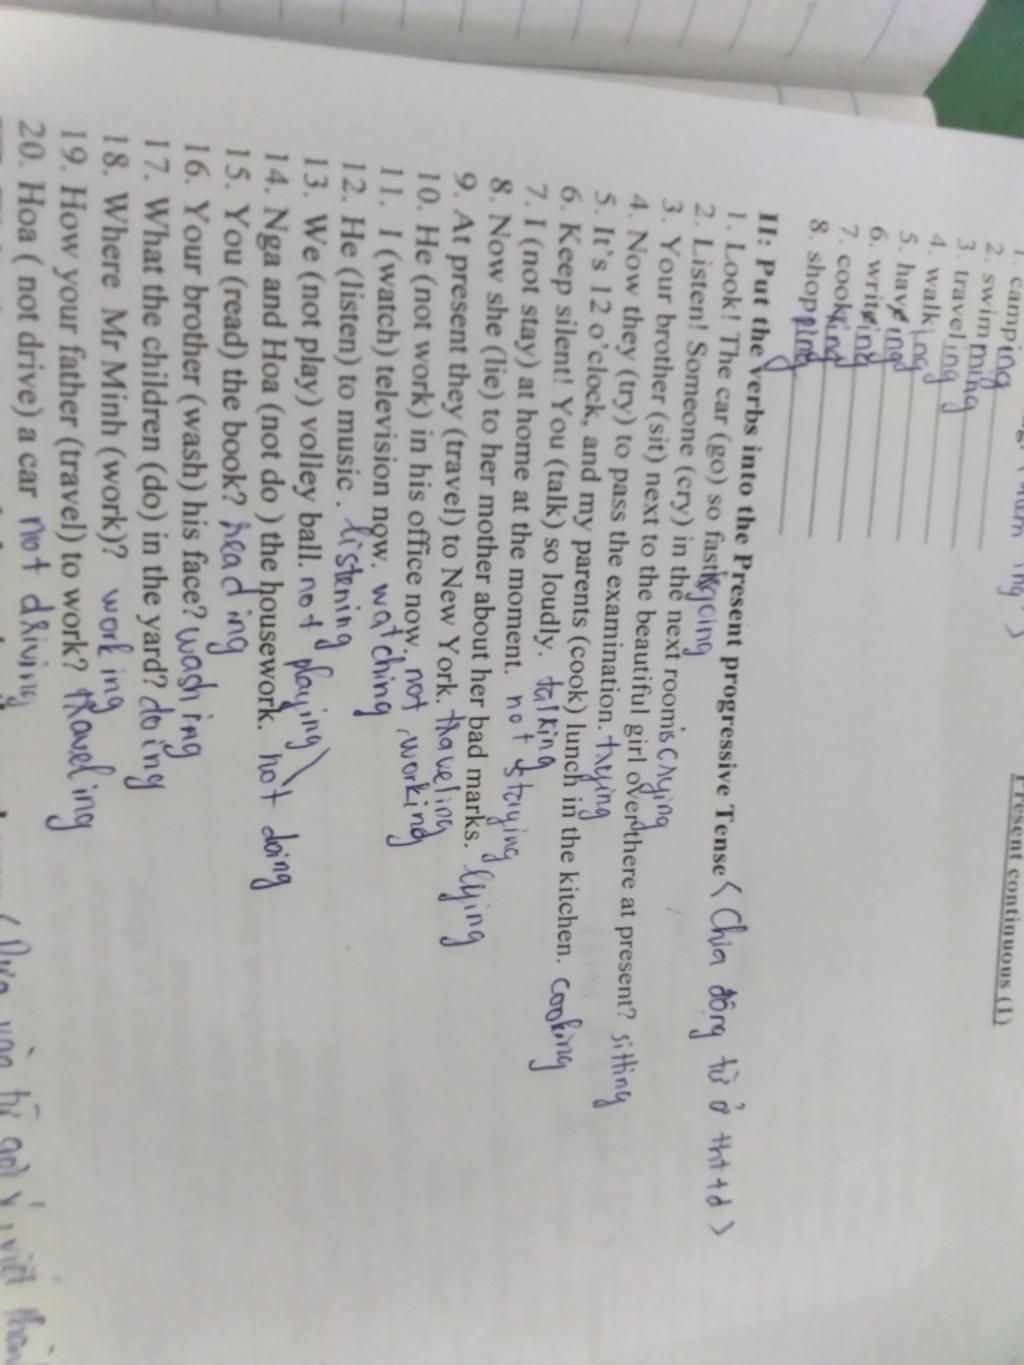 Present continuous (1)
1. camping
2. swimming
3. traveling
4. walking
5. having
6. writing
7. cooking
8. shopping
II: Put the verbs into the Present progressive Tense ( Chia động từ ở tht+d )
1. Look! The car (go) so fast is going
2. Listen! Someone (cry) in the next room is crying
3. Your brother (sit) next to the beautiful girl over there at present? sitting
4. Now they (try) to pass the examination. trying
5. It's 12 o'clock, and my parents (cook) lunch in the kitchen. cooking
6. Keep silent! You (talk) so loudly. talking
7. I (not stay) at home at the moment. not staying
8. Now she (lie) to her mother about her bad marks. lying
9. At present they (travel) to New York. traveling
10. He (not work) in his office now. not working
11. I (watch) television now. watching
12. He (listen) to music . listening
13. We (not play) volley ball. not playing
14. Nga and Hoa (not do ) the housework. not doing
15. You (read) the book? reading
16. Your brother (wash) his face? washing
17. What the children (do) in the yard? doing
18. Where Mr Minh (work)? working
19. How your father (travel) to work? traveling
20. Hoa ( not drive) a car not driving